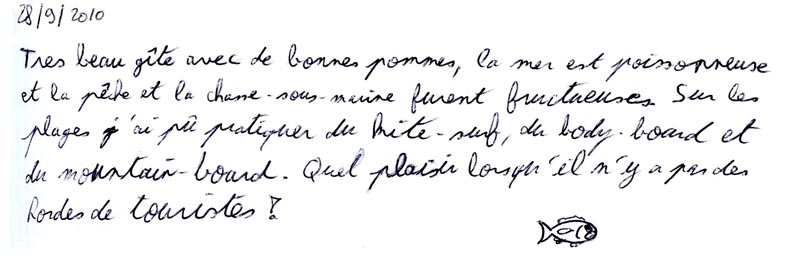 28/9/2010
Tres beau gîte avec de bonnes pommes, la mer est poissonneuse
et la pêche et la chasse-sous-marine furent fructueuses. Sur les
plages j'ai pû pratiquer du kite-surf, du body-board et
du mountain-board. Quel plaisir lorsqu'il n'y a pas des
hordes de touristes !